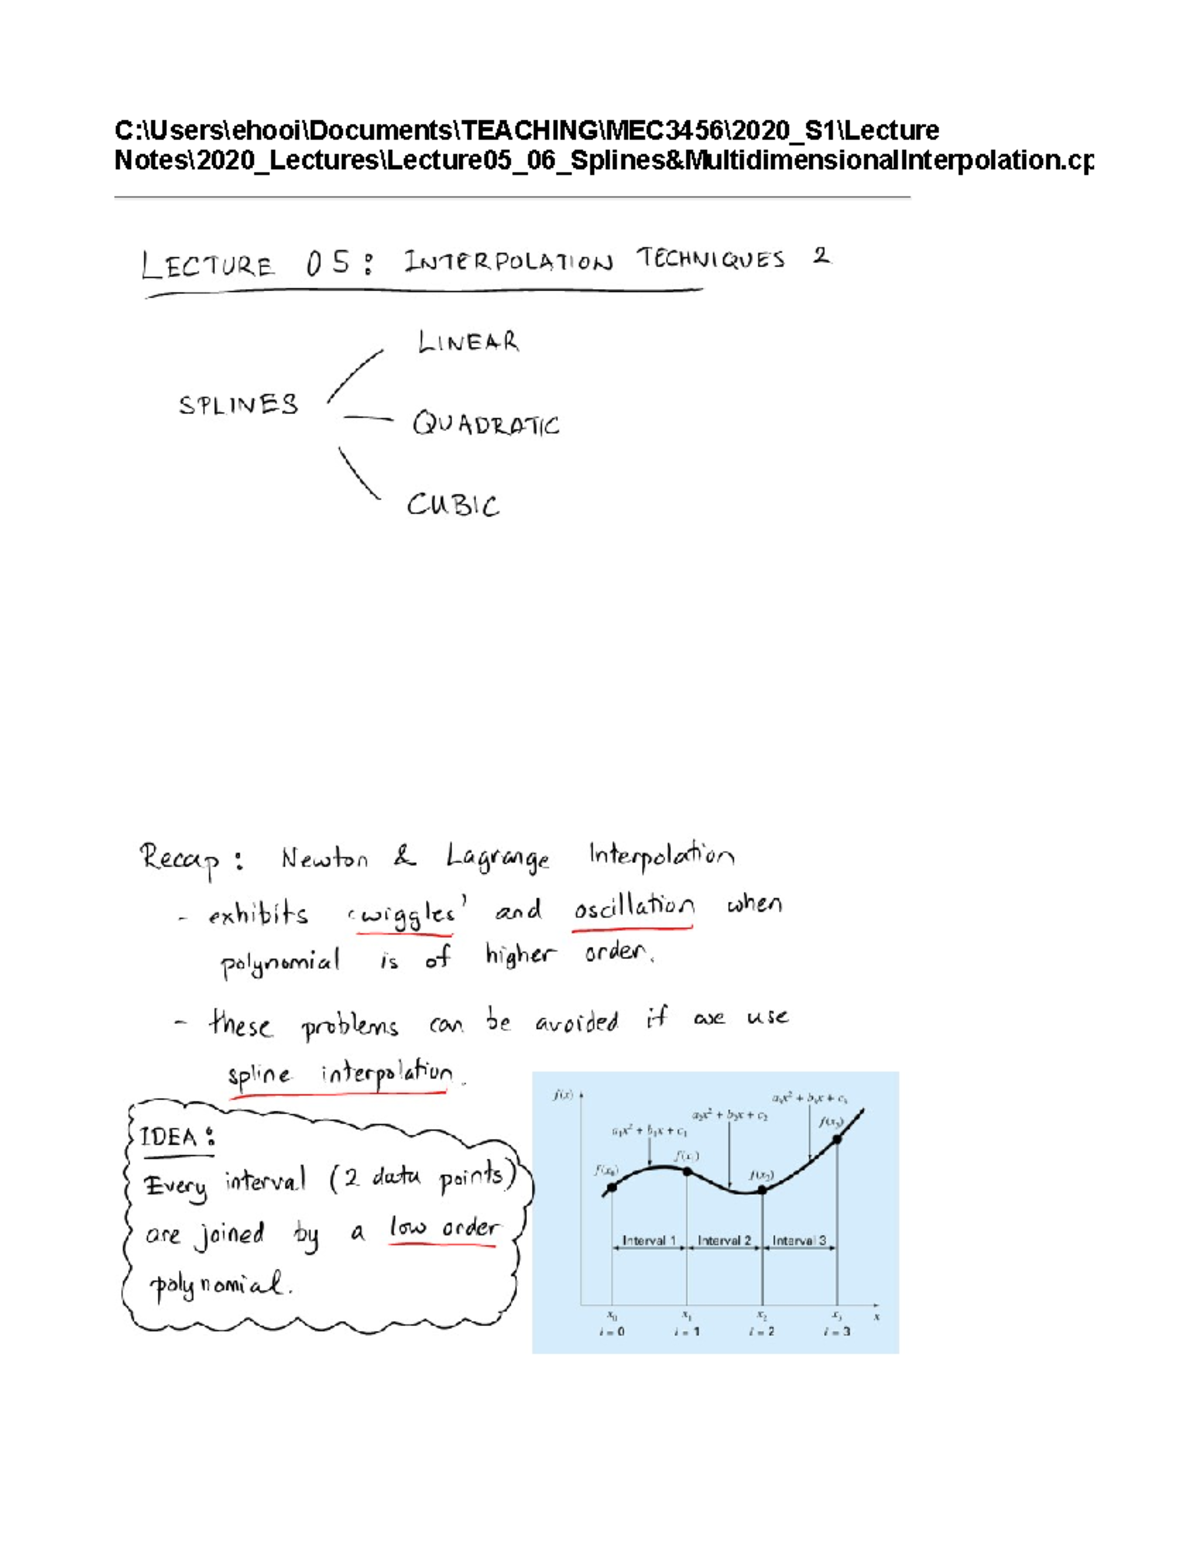 C:\Users\ehooi\Documents\TEACHING\MEC3456\2020_S1\Lecture
Notes\2020_Lectures\Lecture05_06_Splines&MultidimensionalInterpolation.cp
LECTURE 05: INTERPOLATION TECHNIQUES 2
LINEAR
SPLINES
QUADRATIC
CUBIC
Recap: Newton & Lagrange Interpolation
- exhibits 'wiggles' and oscillation when
polynomial is of higher order.
- these problems can be avoided if we use
spline interpolation.
IDEA:
Every interval (2 data points)
are joined by a low order
polynomial.
f(x)
a₁x² + b₁x + c₁
a₂x² + b₂x + c₂
a₃x² + b₃x + c₃
f(x₀)
f(x₁)
f(x₂)
f(x₃)
Interval 1 Interval 2 Interval 3
x₀ x₁ x₂ x₃ x
i = 0 i = 1 i = 2 i = 3